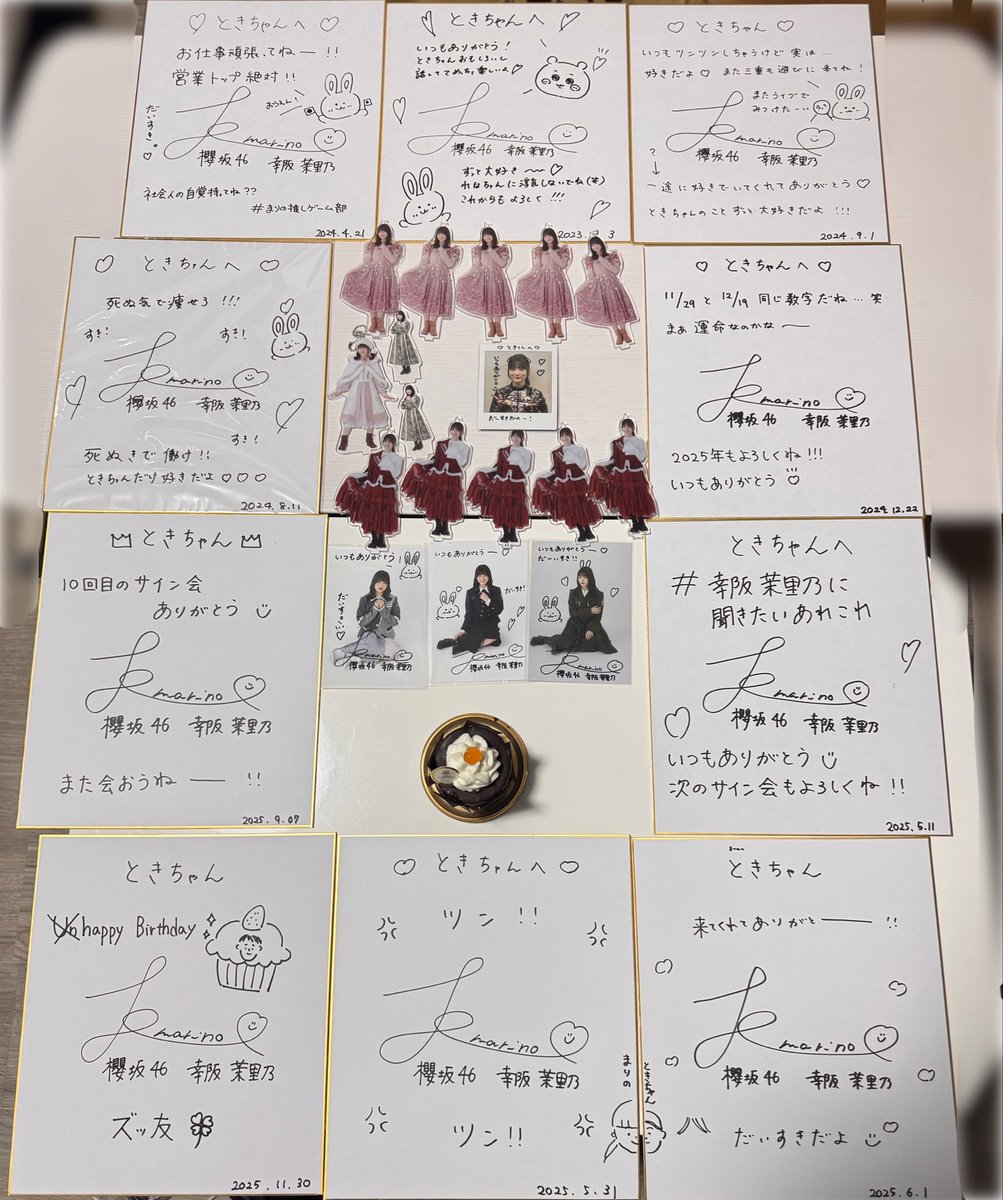 ときちゃんへ
お仕事頑張ってねー!!
営業トップ絶対!!
おうえん!
だいすき。
marino
櫻坂46 幸阪茉里乃
社会人の自覚持ってね??
#まりの推しゲーム部
2024.4.21
ときちゃんへ
いつもありがとう!
ときちゃんおもしろいし
話しててめっちゃ楽しいよ
marino
櫻坂46 幸阪茉里乃
ずっと大好き〜〜
れなちゃんに浮気しないでね(笑)
これからもよろしく!!!
2023.12.3
ときちゃん
いつもツンツンしちゃうけど実は…
好きだよ♡ また三重も遊びに来てね!
またライブで
みつけたーい
marino
櫻坂46 幸阪茉里乃
?
一途に好きでいてくれてありがとう♡
ときちゃんのことずっと大好きだよ!!!
2024.9.1
ときちゃんへ
死ぬ気で痩せろ!!!
すき!
すき!
marino
櫻坂46 幸阪茉里乃
すき!
死ぬきで働け!!
ときちゃんだけ好きだよ♡♡♡
2024.8.11
♡ときくんへ♡
いつもありがとう
だいすきだよー!
ときちゃんへ
11/29と12/19同じ数字だね…笑
まぁ運命なのかなー
marino
櫻坂46 幸阪茉里乃
2025年もよろしくね!!!
いつもありがとう
2024.12.22
ときちゃん
10回目のサイン会
ありがとう
marino
櫻坂46 幸阪茉里乃
また会おうねー!!
2025.9.07
いつもありがとう
だいすきっ
櫻坂46 幸阪茉里乃
いつもありがとうー
だーいすき!
櫻坂46 幸阪茉里乃
いつもありがとうー
だーいすき!!
櫻坂46 幸阪茉里乃
ときちゃんへ
#幸阪茉里乃に
聞きたいあれこれ
marino
櫻坂46 幸阪茉里乃
いつもありがとう
次のサイン会もよろしくね!!
2025.5.11
ときちゃん
Unhappy Birthday
marino
櫻坂46 幸阪茉里乃
ズッ友
2025.11.30
ときちゃんへ
ツン!!
marino
櫻坂46 幸阪茉里乃
ツン!!
まりの
2025.5.31
ときちゃん
来てくれてありがとー!!
marino
櫻坂46 幸阪茉里乃
ときちゃん
だいすきだよ
2025.6.1